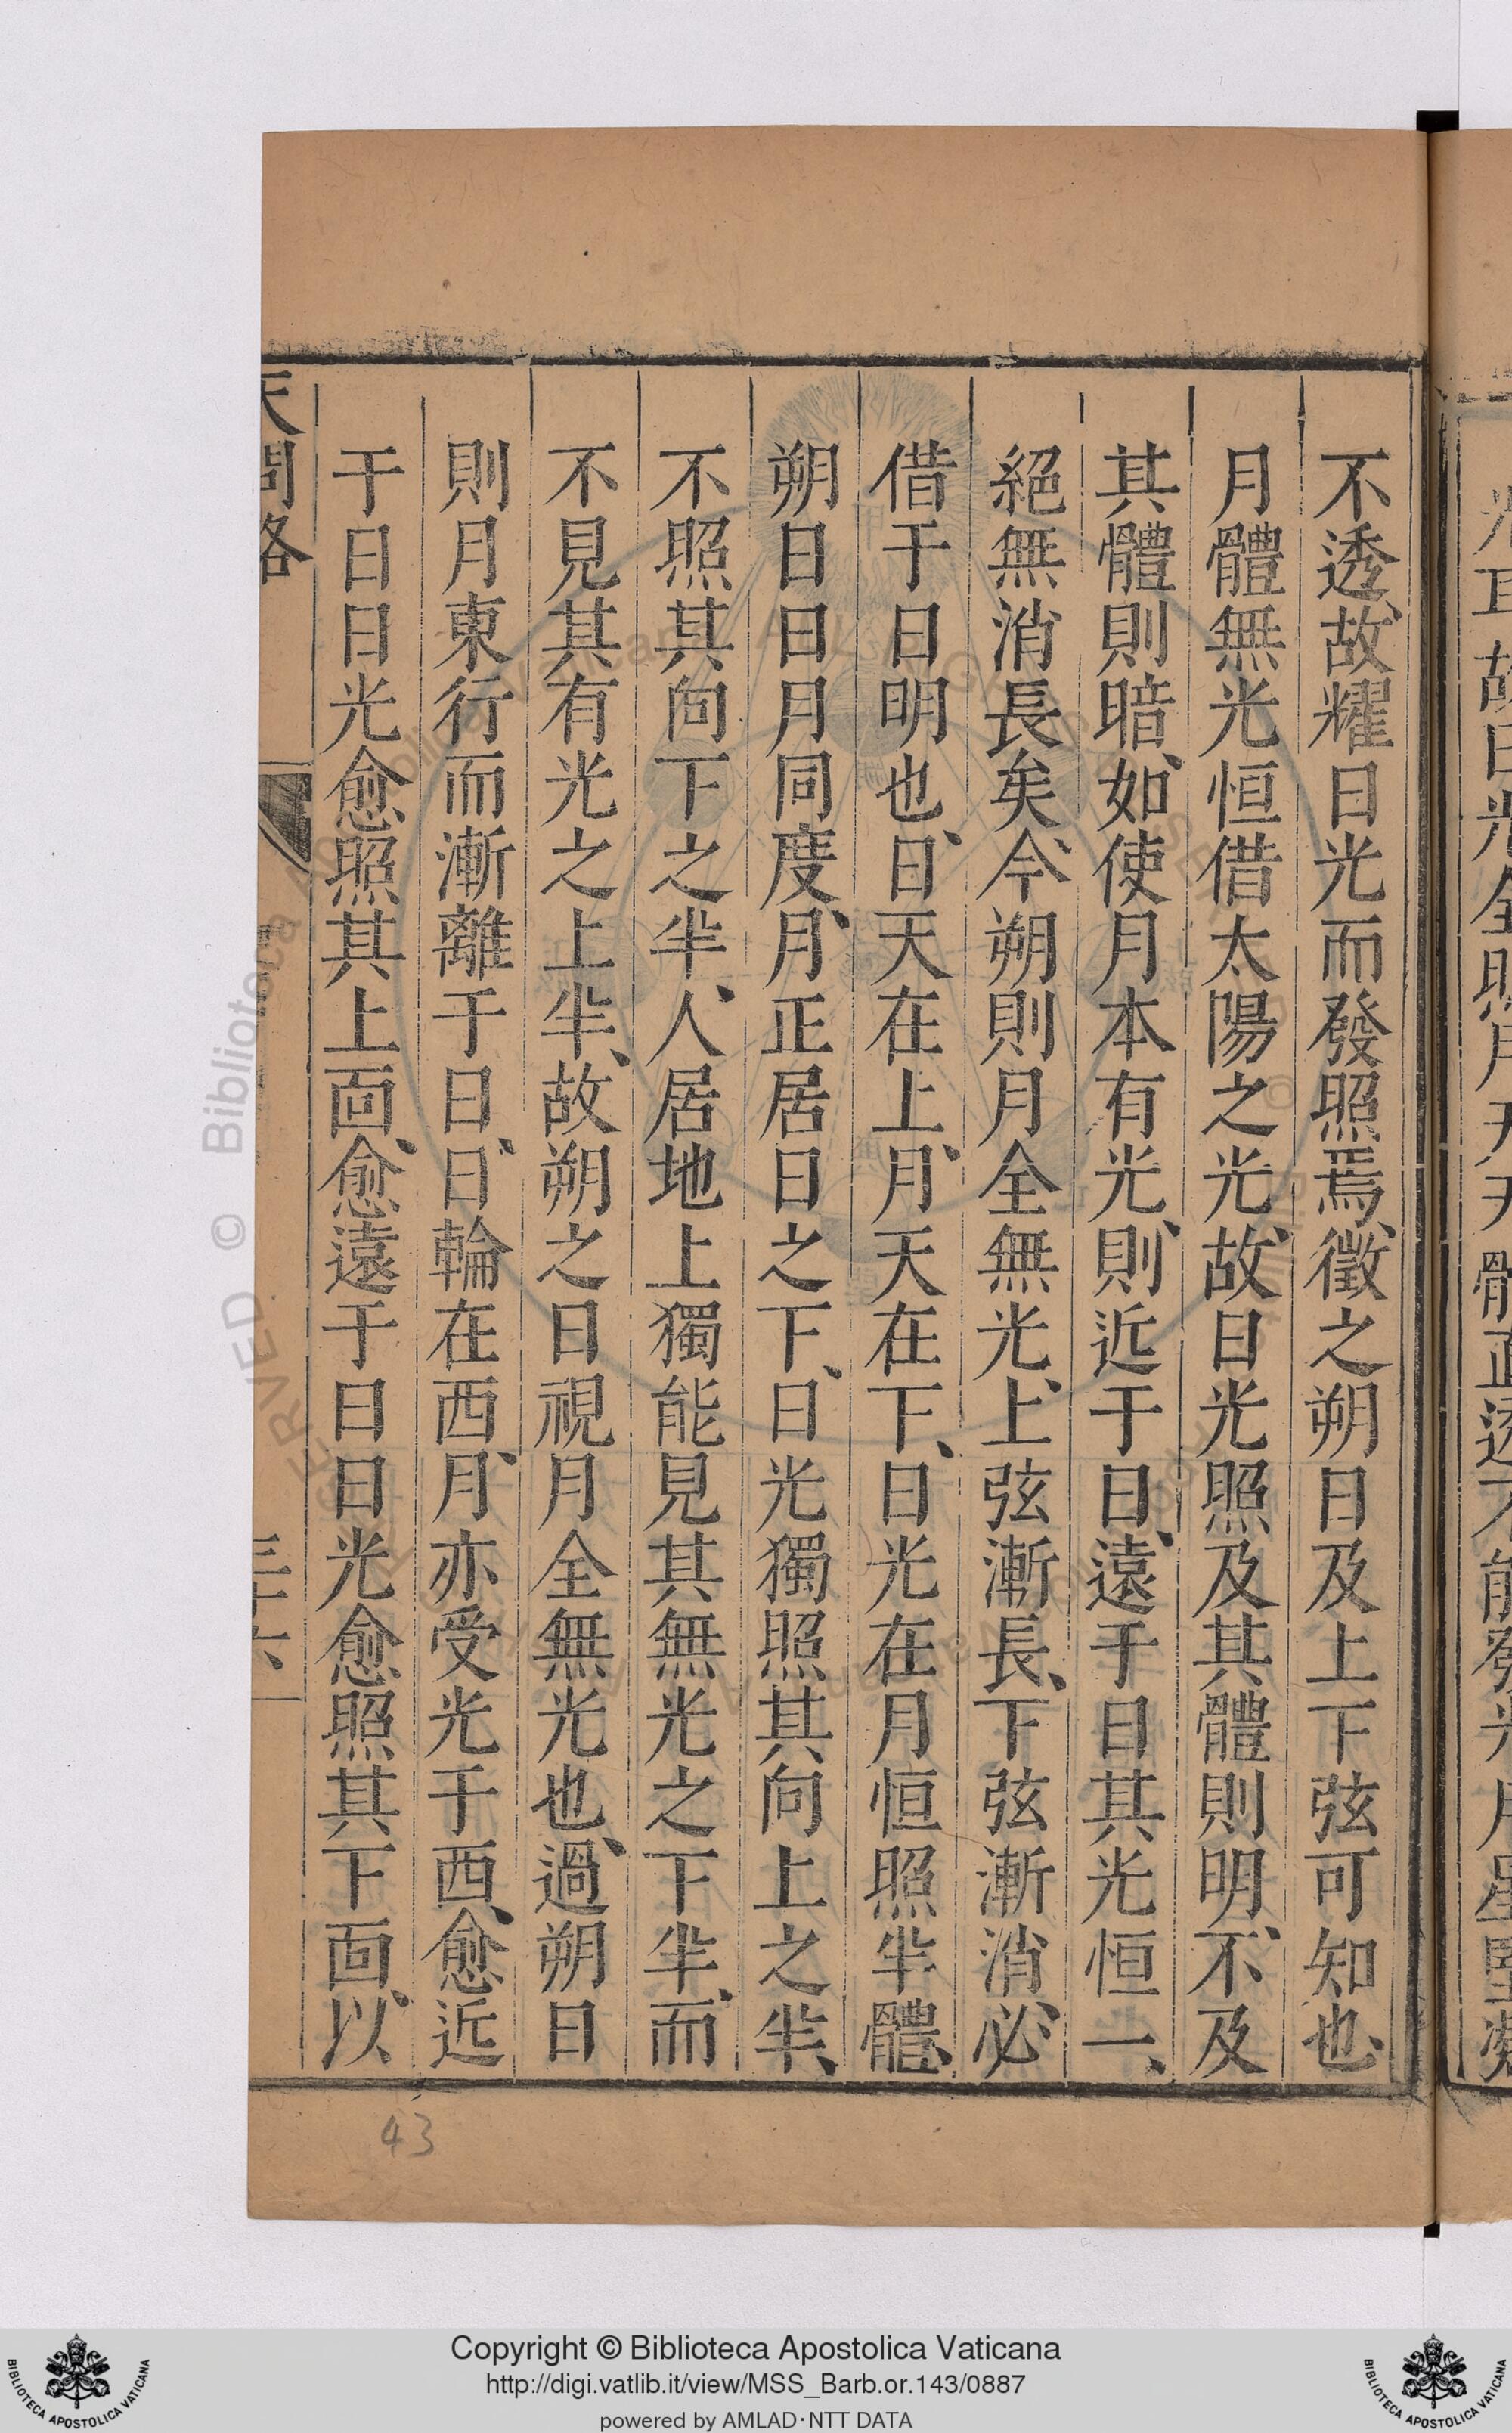 不透、故耀日光而發照焉、徵之朔日及上下弦可知也、
月體無光恒借太陽之光、故日光照及其體則明、不及
其體則暗、如使月本有光、則近于日、遠于日其光恒一、
絕無消長矣、今朔則月全無光、上弦漸長、下弦漸消、必
借于日明也、日天在上、月天在下、日光在月恒照半體、
朔日日月同度、月正居日之下、日光獨照其向上之半、
不照其向下之半、人居地上獨能見其無光之下半、而
不見其有光之上半、故朔之日視月全無光也、過朔日
則月東行而漸離于日、日輪在西、月亦受光于西、愈近
于日日光愈照其上面、愈遠于日日光愈照其下面、以
天問略
三十六
43
Copyright © Biblioteca Apostolica Vaticana
http://digi.vatlib.it/view/MSS_Barb.or.143/0887
powered by AMLAD·NTT DATA
BIBLIOTECA APOSTOLICA VATICANA
BIBLIOTECA APOSTOLICA VATICANA